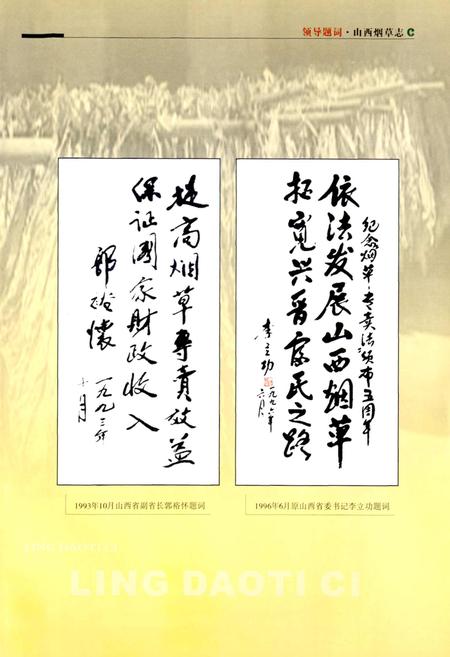 领导题词·山西烟草志 C
提高烟草专卖效益
保证国家財政收入
郭裕懷
一九九三年
十月
纪念烟草专卖法颁布五周年
依法发展山西烟草
拓宽兴晋富民之路
李立功
一九九六年
六月
1993年10月山西省副省长郭裕怀题词
1996年6月原山西省委书记李立功题词
LING DAOTI CI
LING DAOTI CI